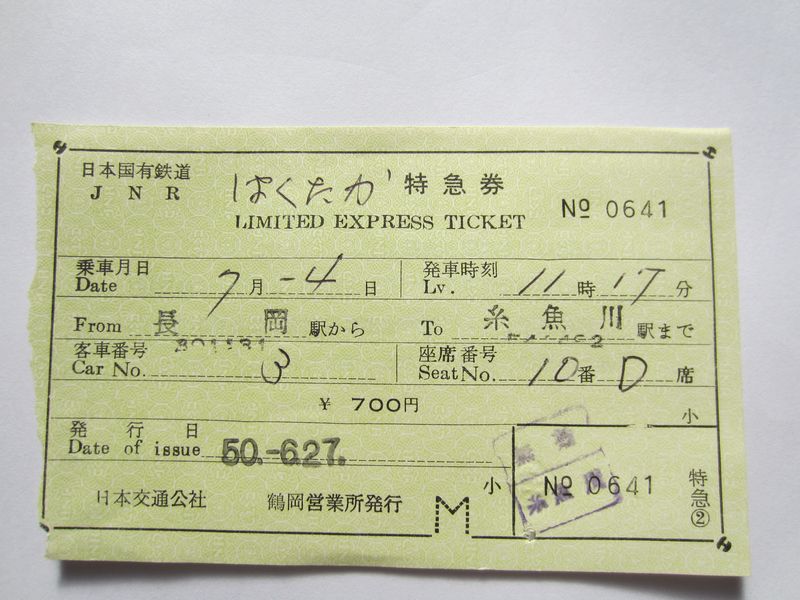 日本国有鉄道 はくたか 特急券
JNR LIMITED EXPRESS TICKET № 0641
乗車月日 発車時刻
Date 7月-4日 Lv. 11時17分
From 長岡 駅から To 糸魚川 駅まで
客車番号 座席番号
Car No. 3 Seat No. 10番D席
¥ 700円 小
発行日
Date of issue 50.-6.27.
日本交通公社 鶴岡営業所発行 M 小 № 0641 特急②